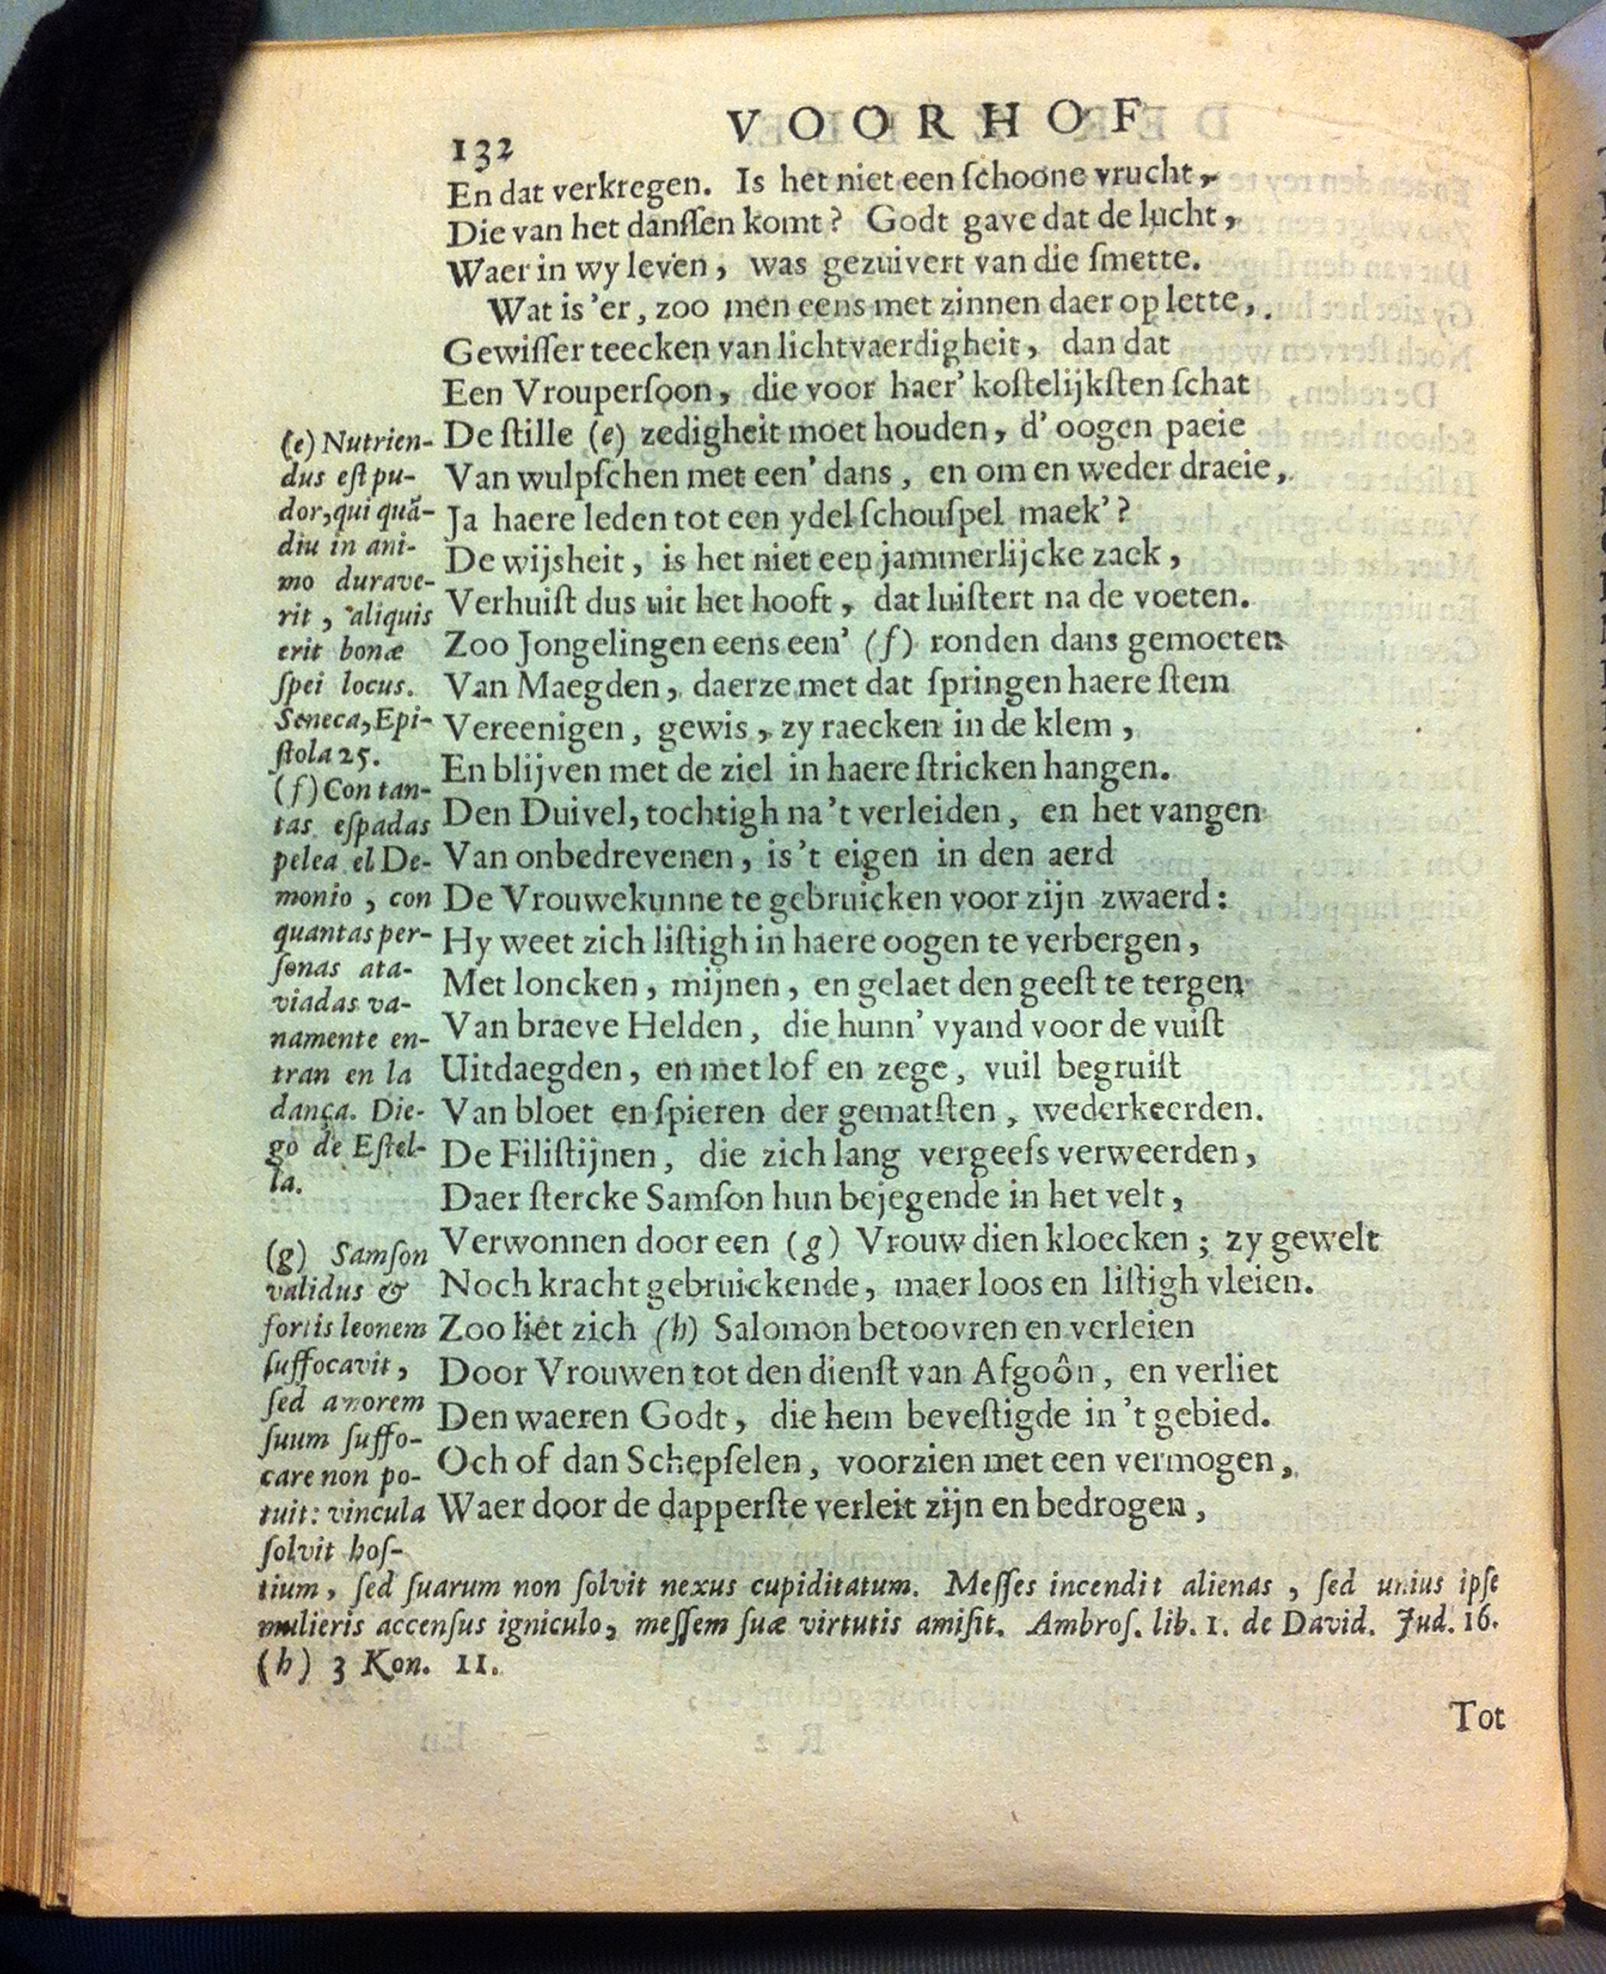 VOORHOF
132
En dat verkregen. Is het niet een ſchoone vrucht,
Die van het danſſen komt? Godt gave dat de lucht,
Waer in wy leven, was gezuivert van die ſmette.
Wat is 'er, zoo men eens met zinnen daer op lette,
Gewiſſer teecken van lichtvaerdigheit, dan dat
Een Vrouperſoon, die voor haer' koſtelijkſten ſchat
De ſtille (e) zedigheit moet houden, d' oogen paeie
Van wulpſchen met een' dans, en om en weder draeie,
Ja haere leden tot een ydel ſchouſpel maek'?
De wijsheit, is het niet een jammerlijcke zaek,
Verhuiſt dus uit het hooft, dat luiſtert na de voeten.
Zoo Jongelingen eens een' (f) ronden dans gemoeten
Van Maegden, daerze met dat ſpringen haere ſtem
Vereenigen, gewis, zy raecken in de klem,
En blijven met de ziel in haere ſtricken hangen.
Den Duivel, tochtigh na 't verleiden, en het vangen
Van onbedrevenen, is 't eigen in den aerd
De Vrouwekunne te gebruicken voor zijn zwaerd:
Hy weet zich liſtigh in haere oogen te verbergen,
Met loncken, mijnen, en gelaet den geeſt te tergen
Van braeve Helden, die hunn' vyand voor de vuiſt
Uitdaegden, en met lof en zege, vuil begruiſt
Van bloet en ſpieren der gematſten, wederkeerden.
De Filiſtijnen, die zich lang vergeefs verweerden,
Daer ſtercke Samſon hun bejegende in het velt,
Verwonnen door een (g) Vrouw dien kloecken; zy gewelt
Noch kracht gebruickende, maer loos en liſtigh vleien.
Zoo liet zich (h) Salomon betoovren en verleien
Door Vrouwen tot den dienſt van Afgoôn, en verliet
Den waeren Godt, die hem beveſtigde in 't gebied.
Och of dan Schepſelen, voorzien met een vermogen,
Waer door de dapperſte verleit zijn en bedrogen,
(e) Nutrien-
dus eſt pu-
dor, qui quã-
diu in ani-
mo durave-
rit, aliquis
erit bonæ
ſpei locus.
Seneca, Epi-
ſtola 25.
(f) Con tan-
tas eſpadas
pelea el De-
monio, con
quantas per-
ſonas ata-
viadas va-
namente en-
tran en la
dança. Die-
go de Eſtel-
la.
(g) Samſon
validus &
fortis leonem
ſuffocavit,
ſed amorem
ſuum ſuffo-
care non po-
tuit: vincula
ſolvit hoſ-
tium, ſed ſuarum non ſolvit nexus cupiditatum. Meſſes incendit alienas, ſed unius ipſe
mulieris accenſus igniculo, meſſem ſuæ virtutis amiſit. Ambroſ. lib. 1. de David. Jud. 16.
(h) 3 Kon. 11.
Tot